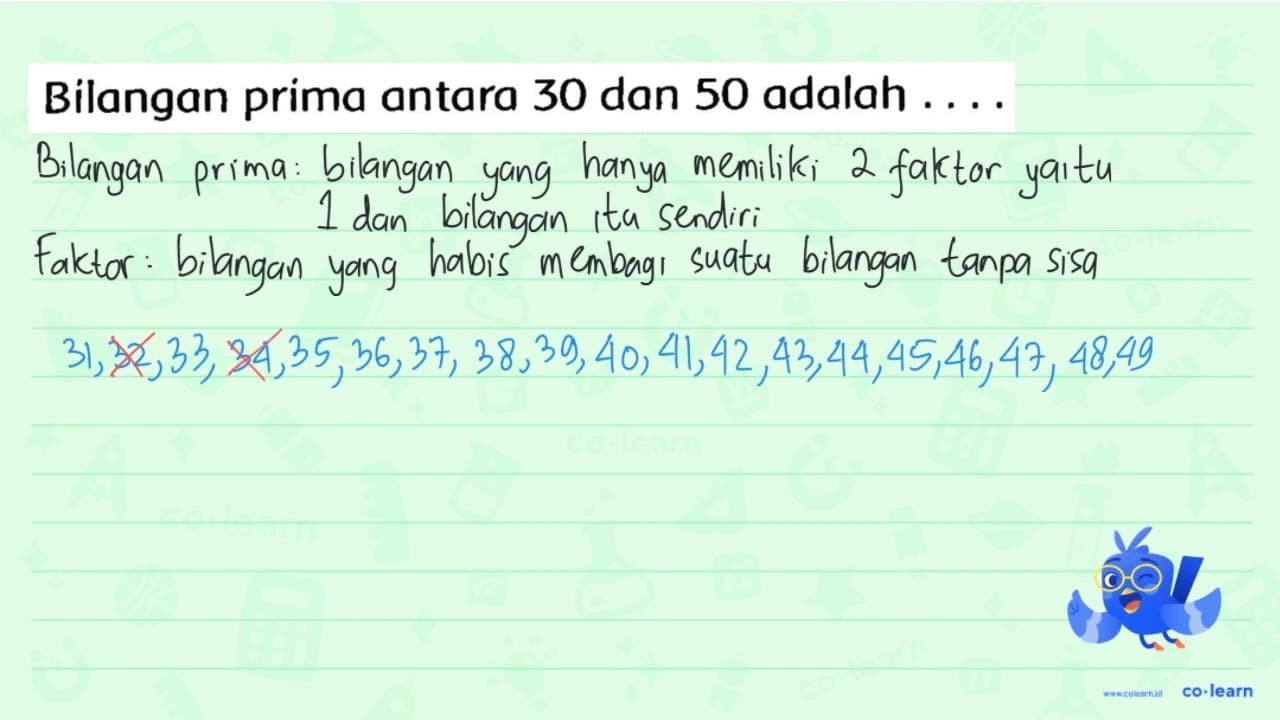 Bilangan prima antara 30 dan 50 adalah . . . .
Bilangan prima: bilangan yang hanya memiliki 2 faktor yaitu
1 dan bilangan itu sendiri
Faktor: bilangan yang habis membagi suatu bilangan tanpa sisa
31, 32, 33, 34, 35, 36, 37, 38, 39, 40, 41, 42, 43, 44, 45, 46, 47, 48, 49
co·learn
co·learn
co·learn
co·learn
www.colearn.id co·learn